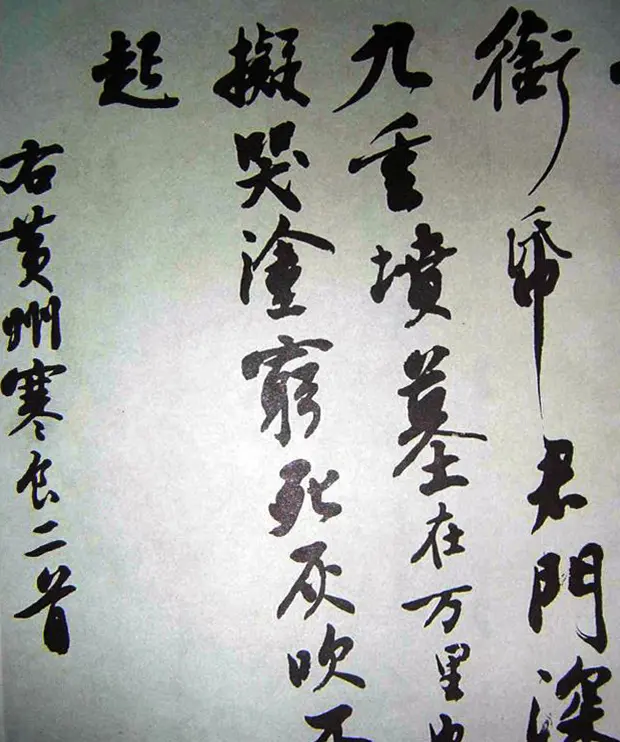 銜帋君門深
九重墳墓在万里也
擬哭塗窮死灰吹不
起
右黄州寒食二首